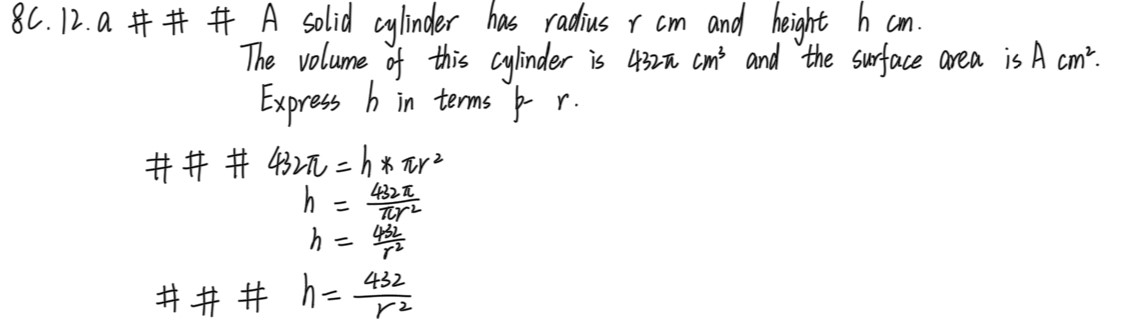 8C.12.a # # # A solid cylinder has radius r cm and height h cm.
The volume of this cylinder is 432π cm³ and the surface area is A cm².
Express h in terms r.
# # # 432π = h * πr²
h = 432π/πr²
h = 432/r²
# # # h = 432/r²